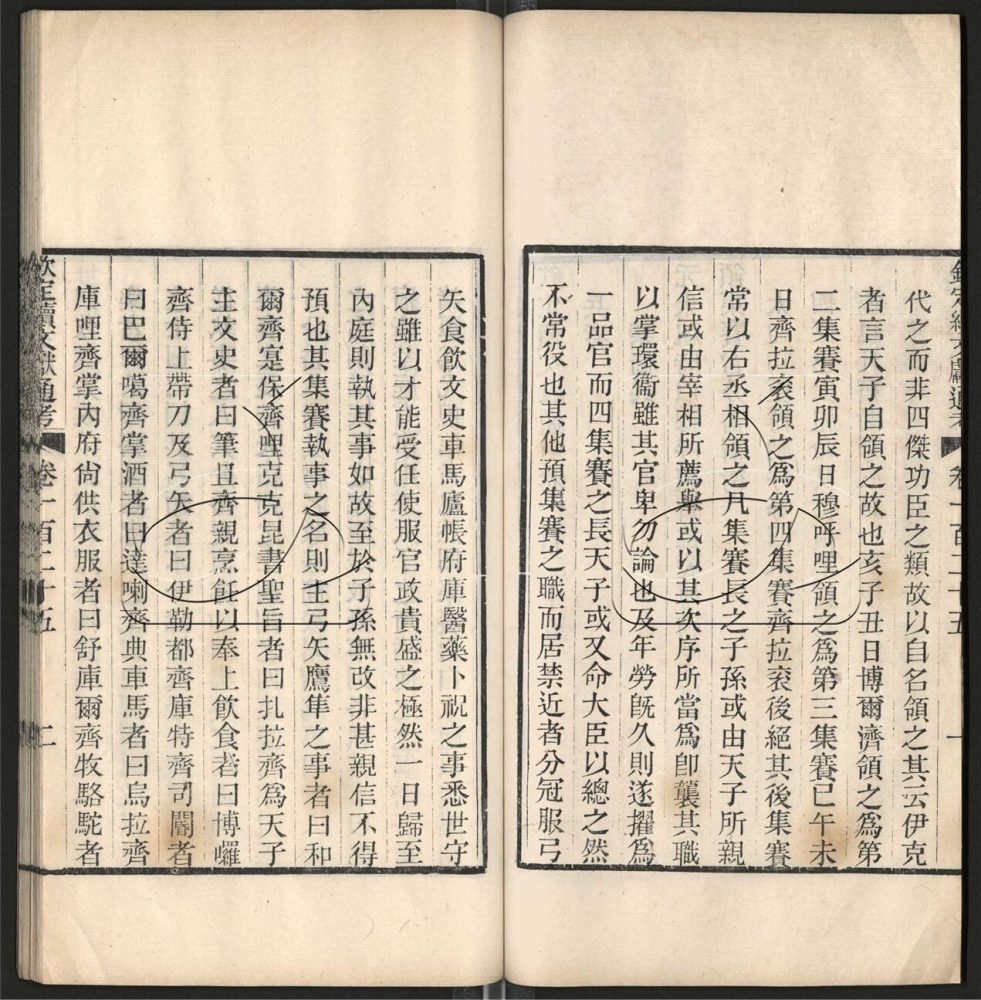 欽定續文獻通考 卷一百二十五 一
代之而非四傑功臣之類故以自名領之其云伊克
者言天子自領之故也亥子丑日博爾濟領之爲第
二集賽寅卯辰日穆呼哩領之爲第三集賽巳午未
日齊拉衮領之爲第四集賽齊拉衮後絕其後集賽
常以右丞相領之凡集賽長之子孫或由天子所親
信或由宰相所薦舉或以其次序所當爲卽襲其職
以掌環衞雖其官卑勿論也及年勞旣久則遂擢爲
一品官而四集賽之長天子或又命大臣以總之然
不常役也其他預集賽之職而居禁近者分冠服弓
矢食飲文史車馬廬帳府庫醫藥卜祝之事悉世守
之雖以才能受任使服官政貴盛之極然一日歸至
內庭則執其事如故至於子孫無改非甚親信不得
預也其集賽執事之名則主弓矢鷹隼之事者曰和
爾齊寔保齊哩克克昆書聖旨者曰扎拉齊爲天子
主文史者曰筆且齊親烹飪以奉上飲食者曰博囉
齊侍上帶刀及弓矢者曰伊勒都齊庫特齊司閽者
曰巴爾噶齊掌酒者曰達喇齊典車馬者曰烏拉齊
庫哩齊掌內府尙供衣服者曰舒庫爾齊牧駱駝者
欽定續文獻通考 卷一百二十五 二